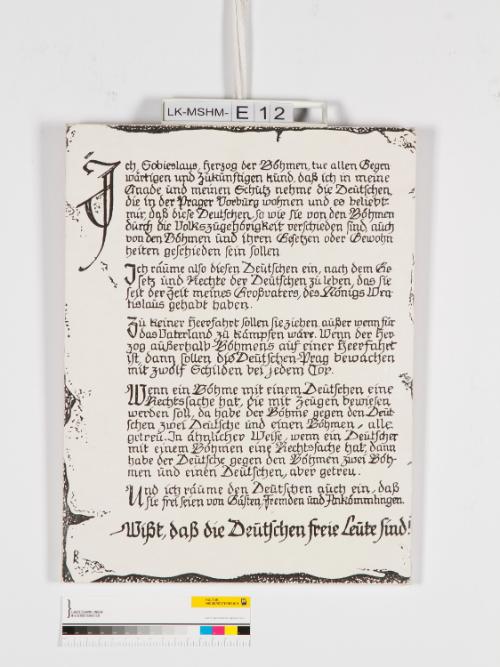 LK-MSHM- E 12
Ich, Sobieslaus, Herzog der Böhmen, tue allen Gegen
wärtigen und Zukünftigen kund, daß ich in meine
Gnade und meinen Schutz nehme die Deutschen,
die in der Prager Vorburg wohnen und es beliebt
mir, daß diese Deutschen, so wie sie von den Böhmen
durch die Volkszugehörigkeit verschieden sind, auch
von den Böhmen und ihren Gesetzen oder Gewohn
heiten geschieden sein sollen.
Ich räume also diesen Deutschen ein, nach dem Ge-
setz und Rechte der Deutschen zu leben, das sie
seit der Zeit meines Großvaters, des Königs Wra
tislaus gehabt haben.
Zu keiner Heerfahrt sollen sie ziehen, außer wenn für
das Vaterland zu kämpfen wäre. Wenn der Her-
zog außerhalb Böhmens auf einer Heerfahrt
ist, dann sollen die Deutschen Prag bewachen
mit zwölf Schilden bei jedem Tor.
Wenn ein Böhme mit einem Deutschen eine
Rechtssache hat, die mit Zeugen bewiesen
werden soll, da habe der Böhme gegen den Deut-
schen zwei Deutsche und einen Böhmen, alle
getreu. In ähnlicher Weise, wenn ein Deutscher
mit einem Böhmen eine Rechtssache hat, dann
habe der Deutsche gegen den Böhmen zwei Böh-
men und einen Deutschen, aber getreu.
Und ich räume den Deutschen auch ein, daß
sie frei seien von Gästen, Fremden und Ankömmlingen.
Wißt, daß die Deutschen freie Leute sind!